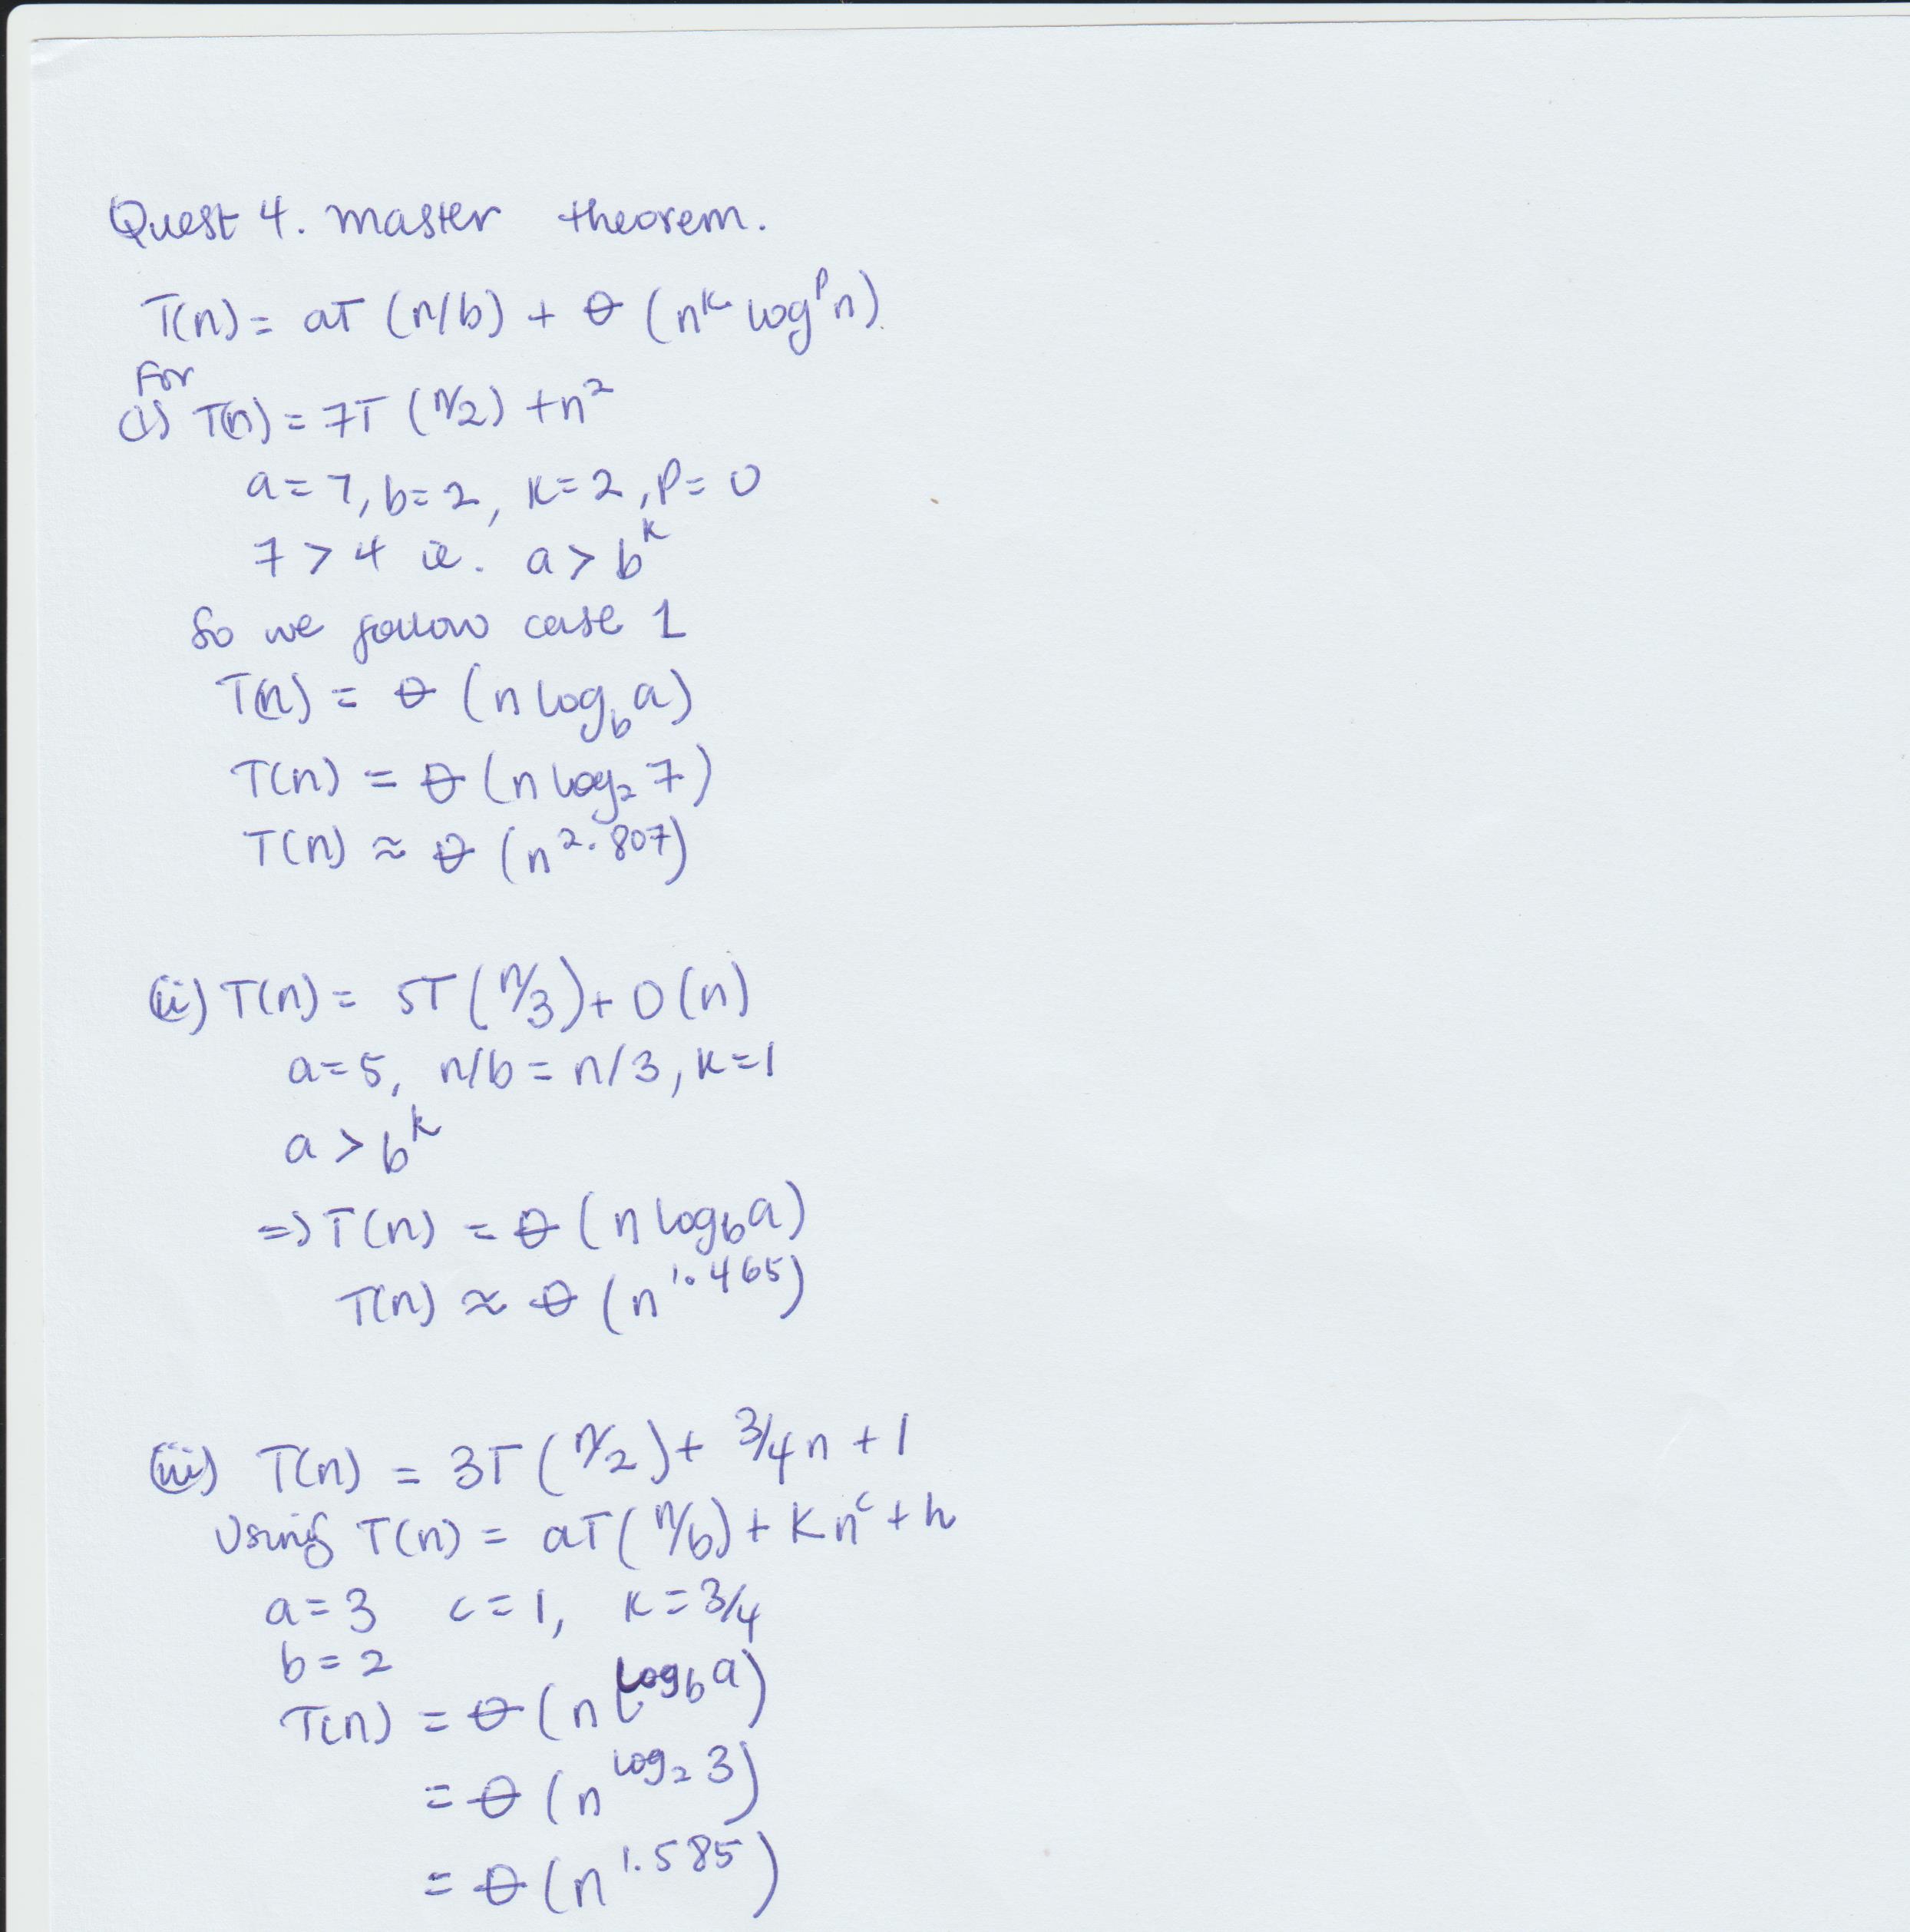 Quest 4. master theorem.
T(n) = aT (n/b) + θ (n^k log^p n).
For
(i) T(n) = 7T (n/2) + n²
a = 7, b = 2, k = 2, P = 0
7 > 4 ie. a > b^k
So we follow case 1
T(n) = θ (n log_b a)
T(n) = θ (n log₂ 7)
T(n) ≈ θ (n^2.807)
(ii) T(n) = 5T (n/3) + O(n)
a = 5, n/b = n/3, k = 1
a > b^k
=> T(n) = θ (n log_b a)
T(n) ≈ θ (n^1.465)
(iii) T(n) = 3T (n/2) + 3/4 n + 1
Using T(n) = aT (n/b) + K n^c + h
a = 3 c = 1, k = 3/4
b = 2
T(n) = θ (n^log_b a)
= θ (n^log₂ 3)
= θ (n^1.585)